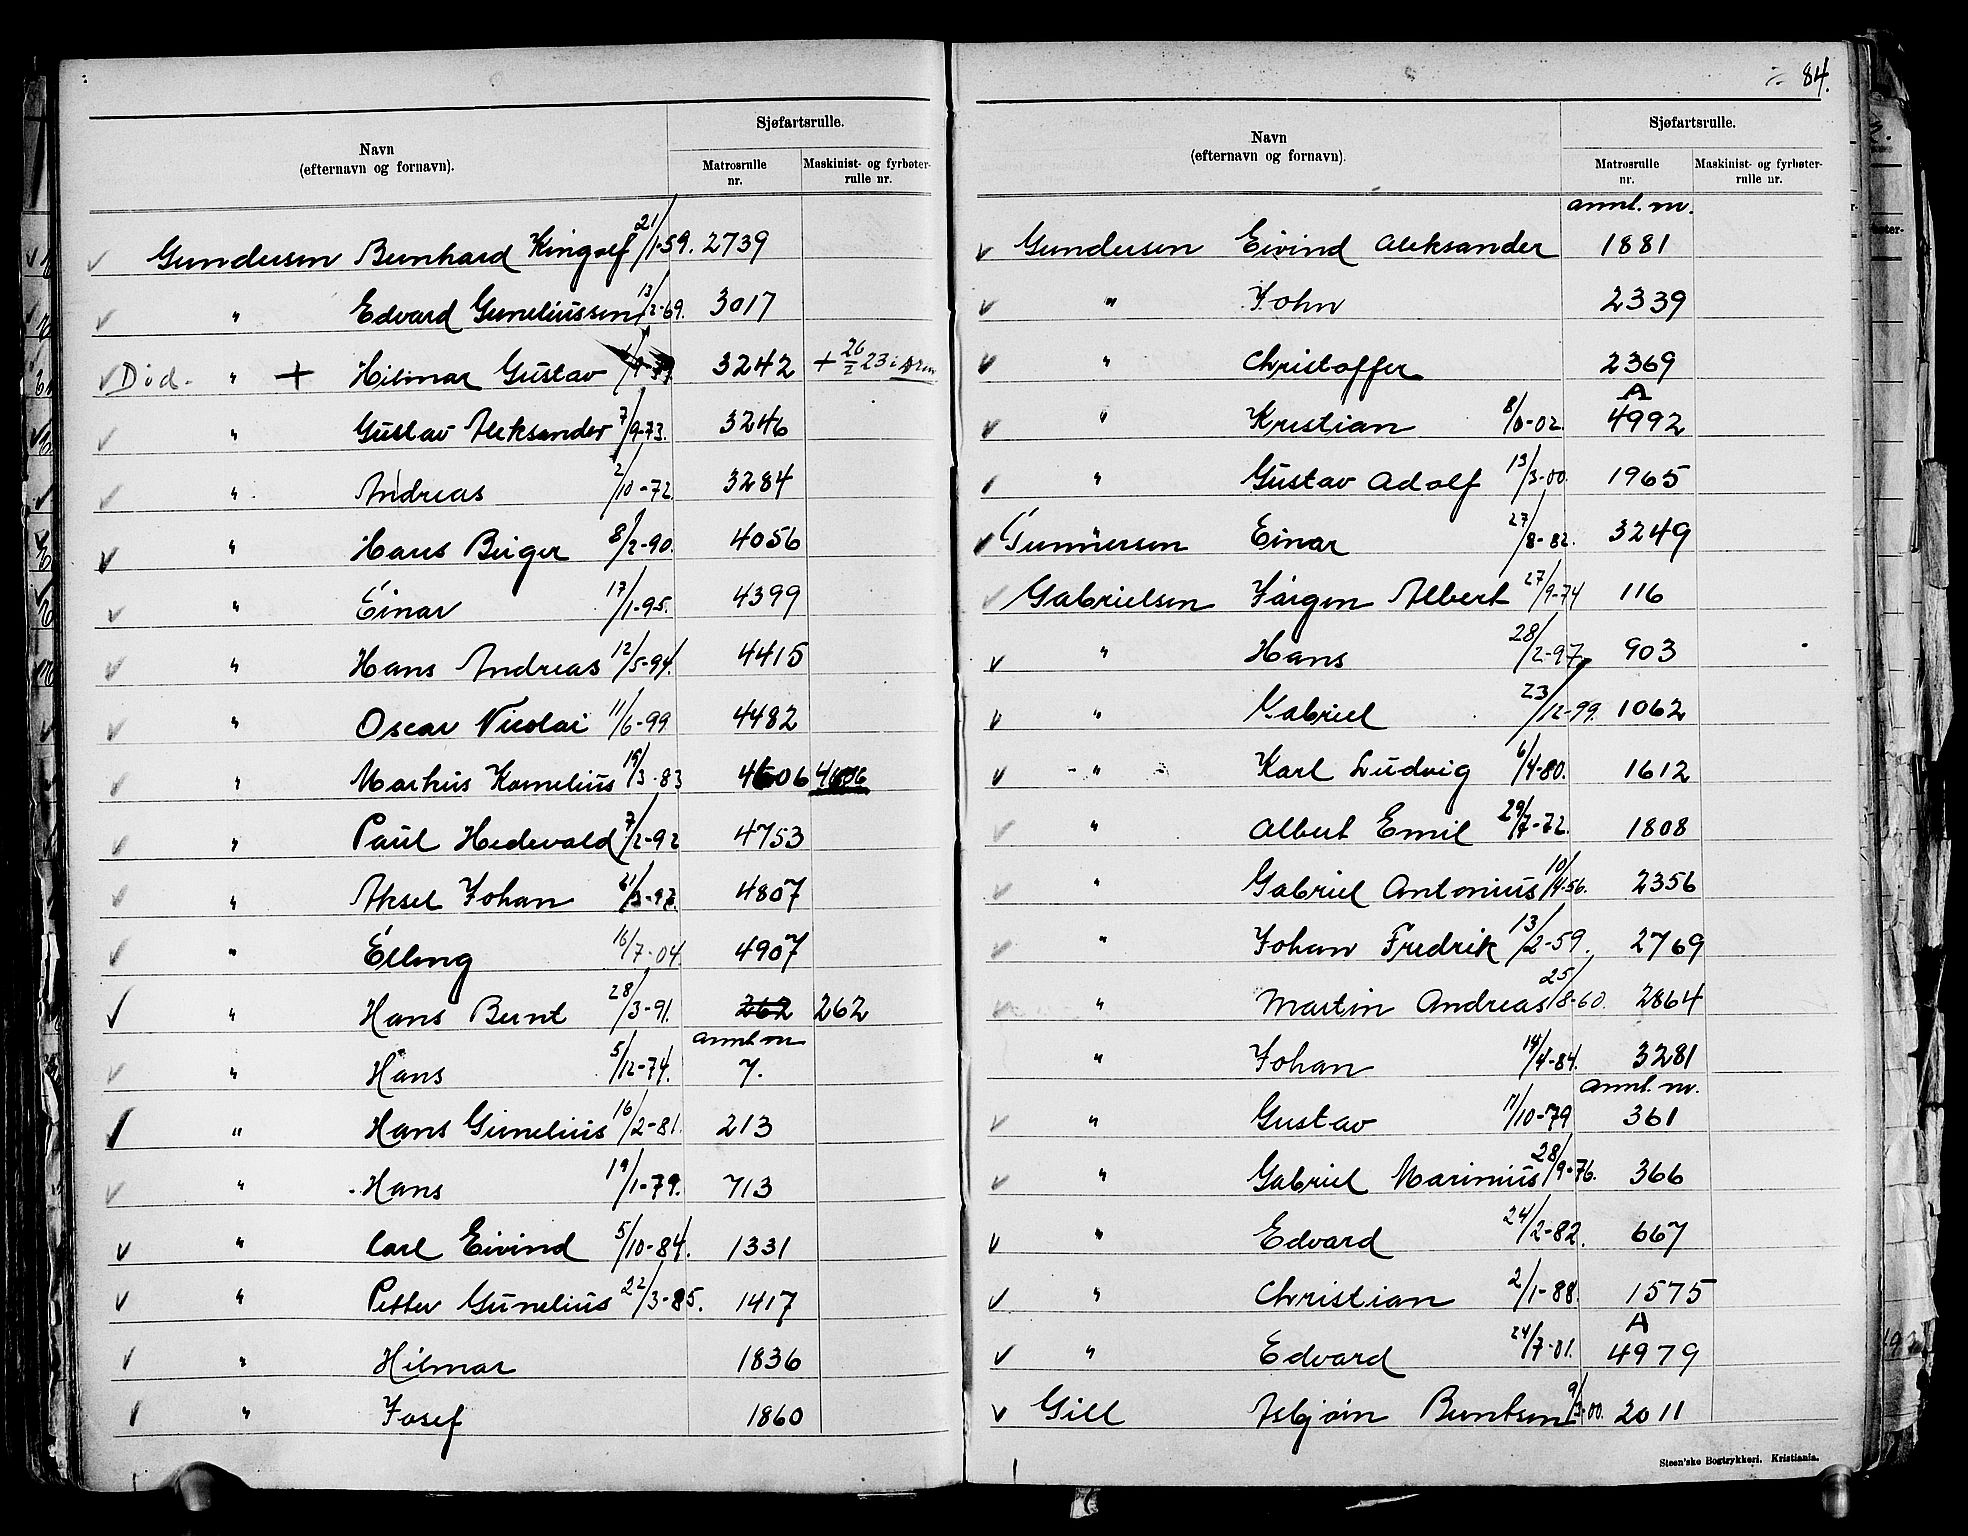 84.
Navn
(efternavn og fornavn).
Sjøfartsrulle.
Matrosrulle nr.
Maskinist- og fyrbøter-rulle nr.
Gundersen Bernhard Kingolf 21/1-59. 2739
" Edvard Corneliussen 13/2-69. 3017
Død. " + Hilmar Gustav 3242 + 26/2 23 i Dram
" Gustav Aleksander 7/9-73. 3246
" Andreas 2/10-72. 3284
" Hans Birger 8/2-90. 4056
" Einar 17/1-95. 4399
" Hans Andreas 12/5-94. 4415
" Oscar Nicolai 11/6-99 4482
" Markus Kornelius 19/3-83 4606 4606
" Paul Hedevald 7/2-92 4753
" Aksel Johan 4807
" Elling 16/7-04. 4907
" Hans Bernt 28/3-91. 262 262
annl. m
" Hans 5/12-74. 7.
" Hans Cornelius 16/2-81. 213
" Hans 19/1-79. 713
" Carl Eivind 5/10-84. 1331
" Petter Cornelius 22/3-85. 1417
" Hilmar 1836
" Josef 1860
Navn
(efternavn og fornavn).
Sjøfartsrulle.
Matrosrulle nr.
Maskinist- og fyrbøter-rulle nr.
annl. m.
Gundersen Eivind Aleksander 1881
" John 2339
" Christoffer 2369
A
" Kristian 8/6-02. 4992
" Gustav Adolf 13/3-00. 1965
Gunnersen Einar 27/8-82. 3249
Gabrielsen Jørgen Albert 27/9-74 116
" Hans 28/2-97. 903
" Gabriel 23/12-99. 1062
" Karl Ludvig 6/4-80. 1612
" Albert Emil 29/7-72. 1808
" Gabriel Antonius 10/4-56. 2356
" Johan Fredrik 13/2-59. 2769
" Martin Andreas 25/8-60. 2864
" Johan 14/4-84. 3281
annl. m.
" Gustav 11/10-79 361
" Gabriel Marinius 28/9-76. 366
" Edvard 24/2-82. 667
" Christian 2/1-88. 1575
A
" Edvard 24/7-01. 4979
Gill Asbjørn Berntsen 9/3-00. 2011
Steen'ske Bogtrykkeri. Kristiania.